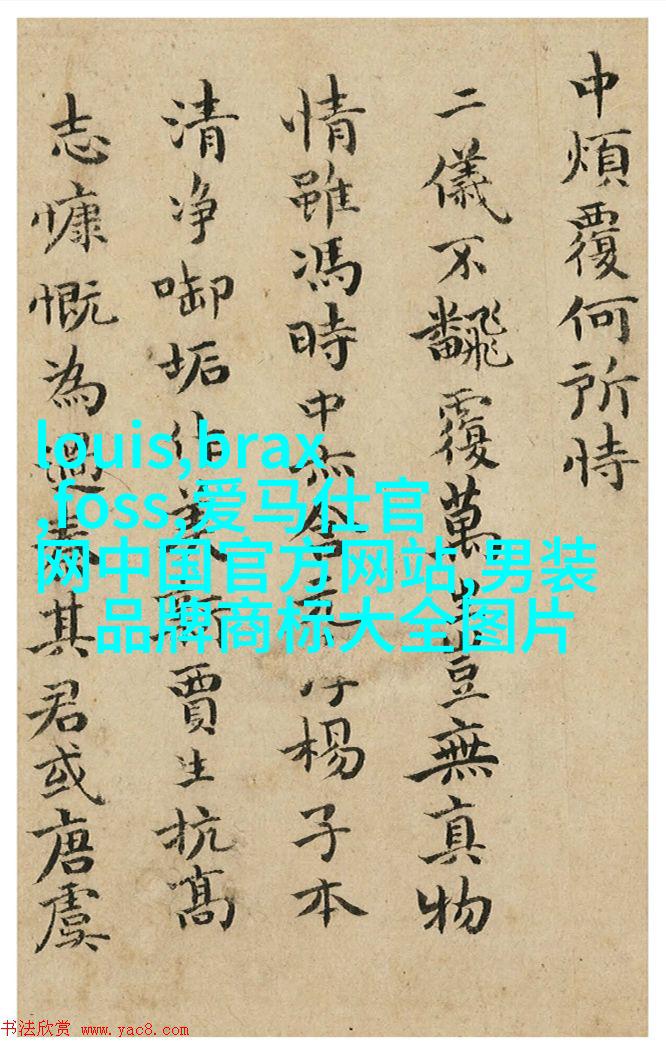 中煩覆何所恃
二儀不飜覆萬豈無真物
情雖馮時中楊子本
清净啣垢作美新賈生抗高
志慷慨為過秦其君或唐虞
louis,brax
,foss,爱马仕官
网中国官方网站,男装
品牌商标大全图片
书法欣赏 www.yac8.com